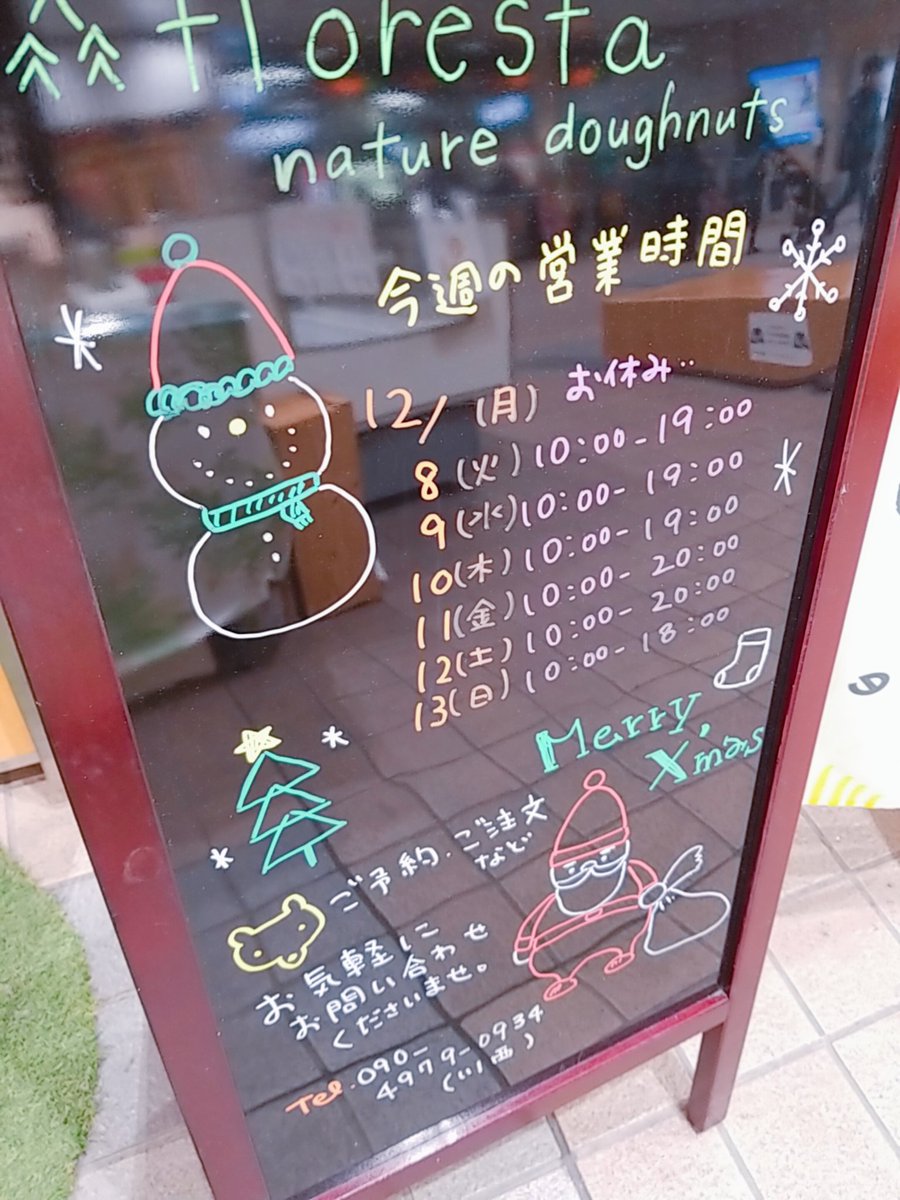 floresta
nature doughnuts
今週の営業時間
12/ (月) お休み..
8 (火) 10:00-19:00
9 (水) 10:00-19:00
10 (木) 10:00-19:00
11 (金) 10:00-20:00
12 (土) 10:00-20:00
13 (日) 10:00-18:00
Merry,
X'mas
ご予約・ご注文
など
お気軽に
お問い合わせ
くださいませ。
Tel.090-
4979-0934
(川西)